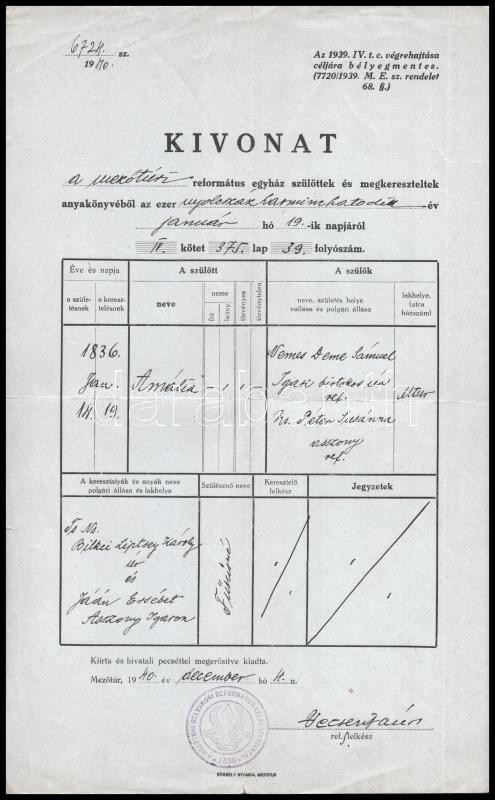 6724. sz.
1940.
Az 1939. IV. t. c. végrehajtása
céljára bélyegmentes.
(7720/1939. M. E. sz. rendelet
68. §.)
KIVONAT
a mezőtúri református egyház szülöttek és megkereszteltek
anyakönyvéből az ezer nyolcszázharminchatodik év
január hó 19.-ik napjáról
III. kötet 375. lap 39. folyószám.
Év és napja
A szülött
A szülők
a szüle-
tésnek
a keresz-
telésnek
neve
neme
fiú
leány
törvényes
törvénytelen
neve, születés helye
vallása és polgári állása
lakhelye,
(utca
házszám)
1836.
Jan.
14. 19.
Amália
Nemes Deme Sámuel
Igari birtokos
ref.
Ns. Péter Zsuzsánna
asszony
ref.
A keresztatyák és anyák neve
polgári állása és lakhelye
Szülésznő neve
Keresztelő
lelkész
Jegyzetek
Ts Ns.
Bilkei Liptsey Károly
úr
és
Jáán Ersébet
Asszony Igaron
Kiírta és hivatali pecséttel megerősítve kiadta.
Mezőtúr, 1940 év december hó 4.-n.
ref. lelkész
1530
BORBÉLY NYOMDA, MEZŐTÚR
darabanth